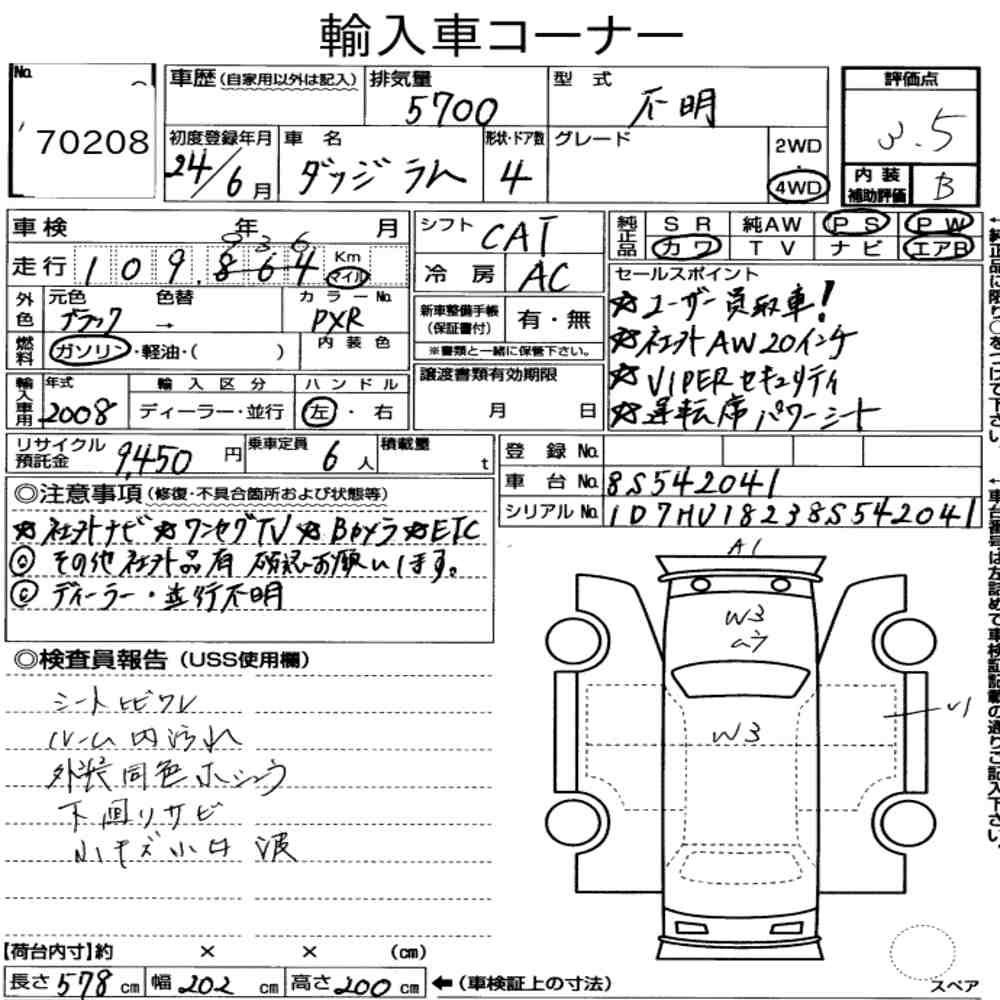 輸入車コーナー
No.
70208
車歴(自家用以外は記入)
排気量
5700
型式
不明
評価点
3.5
初度登録年月
24/6月
車名
ダッジラム
形状・ドア数
4
グレード
2WD
・
4WD
内装補助評価
B
車検 年 月
936
走行 109,864 Km マイル
シフト CAT
冷房 AC
純正品
SR 純AW PS PW
カワ TV ナビ エアB
外色
元色 色替 カラーNo.
ブラック → PXR
燃料
ガソリン・軽油・( )
内装色
新車整備手帳(保証書付)
有・無
※書類と一緒に保管下さい。
セールスポイント
☆ユーザー買取車!
☆社外AW20インチ
☆VIPERセキュリティ
☆運転席パワーシート
輸入車用
年式
2008
輸入区分
ディーラー・並行
ハンドル
左・右
譲渡書類有効期限
月 日
リサイクル預託金 9,450円
乗車定員 6人
積載量 t
登録No.
車台No. 8S542041
シリアルNo. 1D7HU18238S542041
◎注意事項(修復・不具合箇所および状態等)
☆社外ナビ ☆ワンセグTV ☆Bカメラ ☆ETC
◎その他社外品有 確認お願いします。
◎ディーラー・並行不明
◎検査員報告(USS使用欄)
シートヒビワレ
ルーム内汚れ
外装同色ホシュウ
下回りサビ
小キズ小凹 波
A1
W3
ムラ
W3
U1
【荷台内寸】約 × × (cm)
長さ578cm 幅202cm 高さ200cm ←(車検証上の寸法)
スペア
↑純正品に限り○をつけて下さい。
↑車台番号は左詰めで車検証記載の通りご記入下さい。